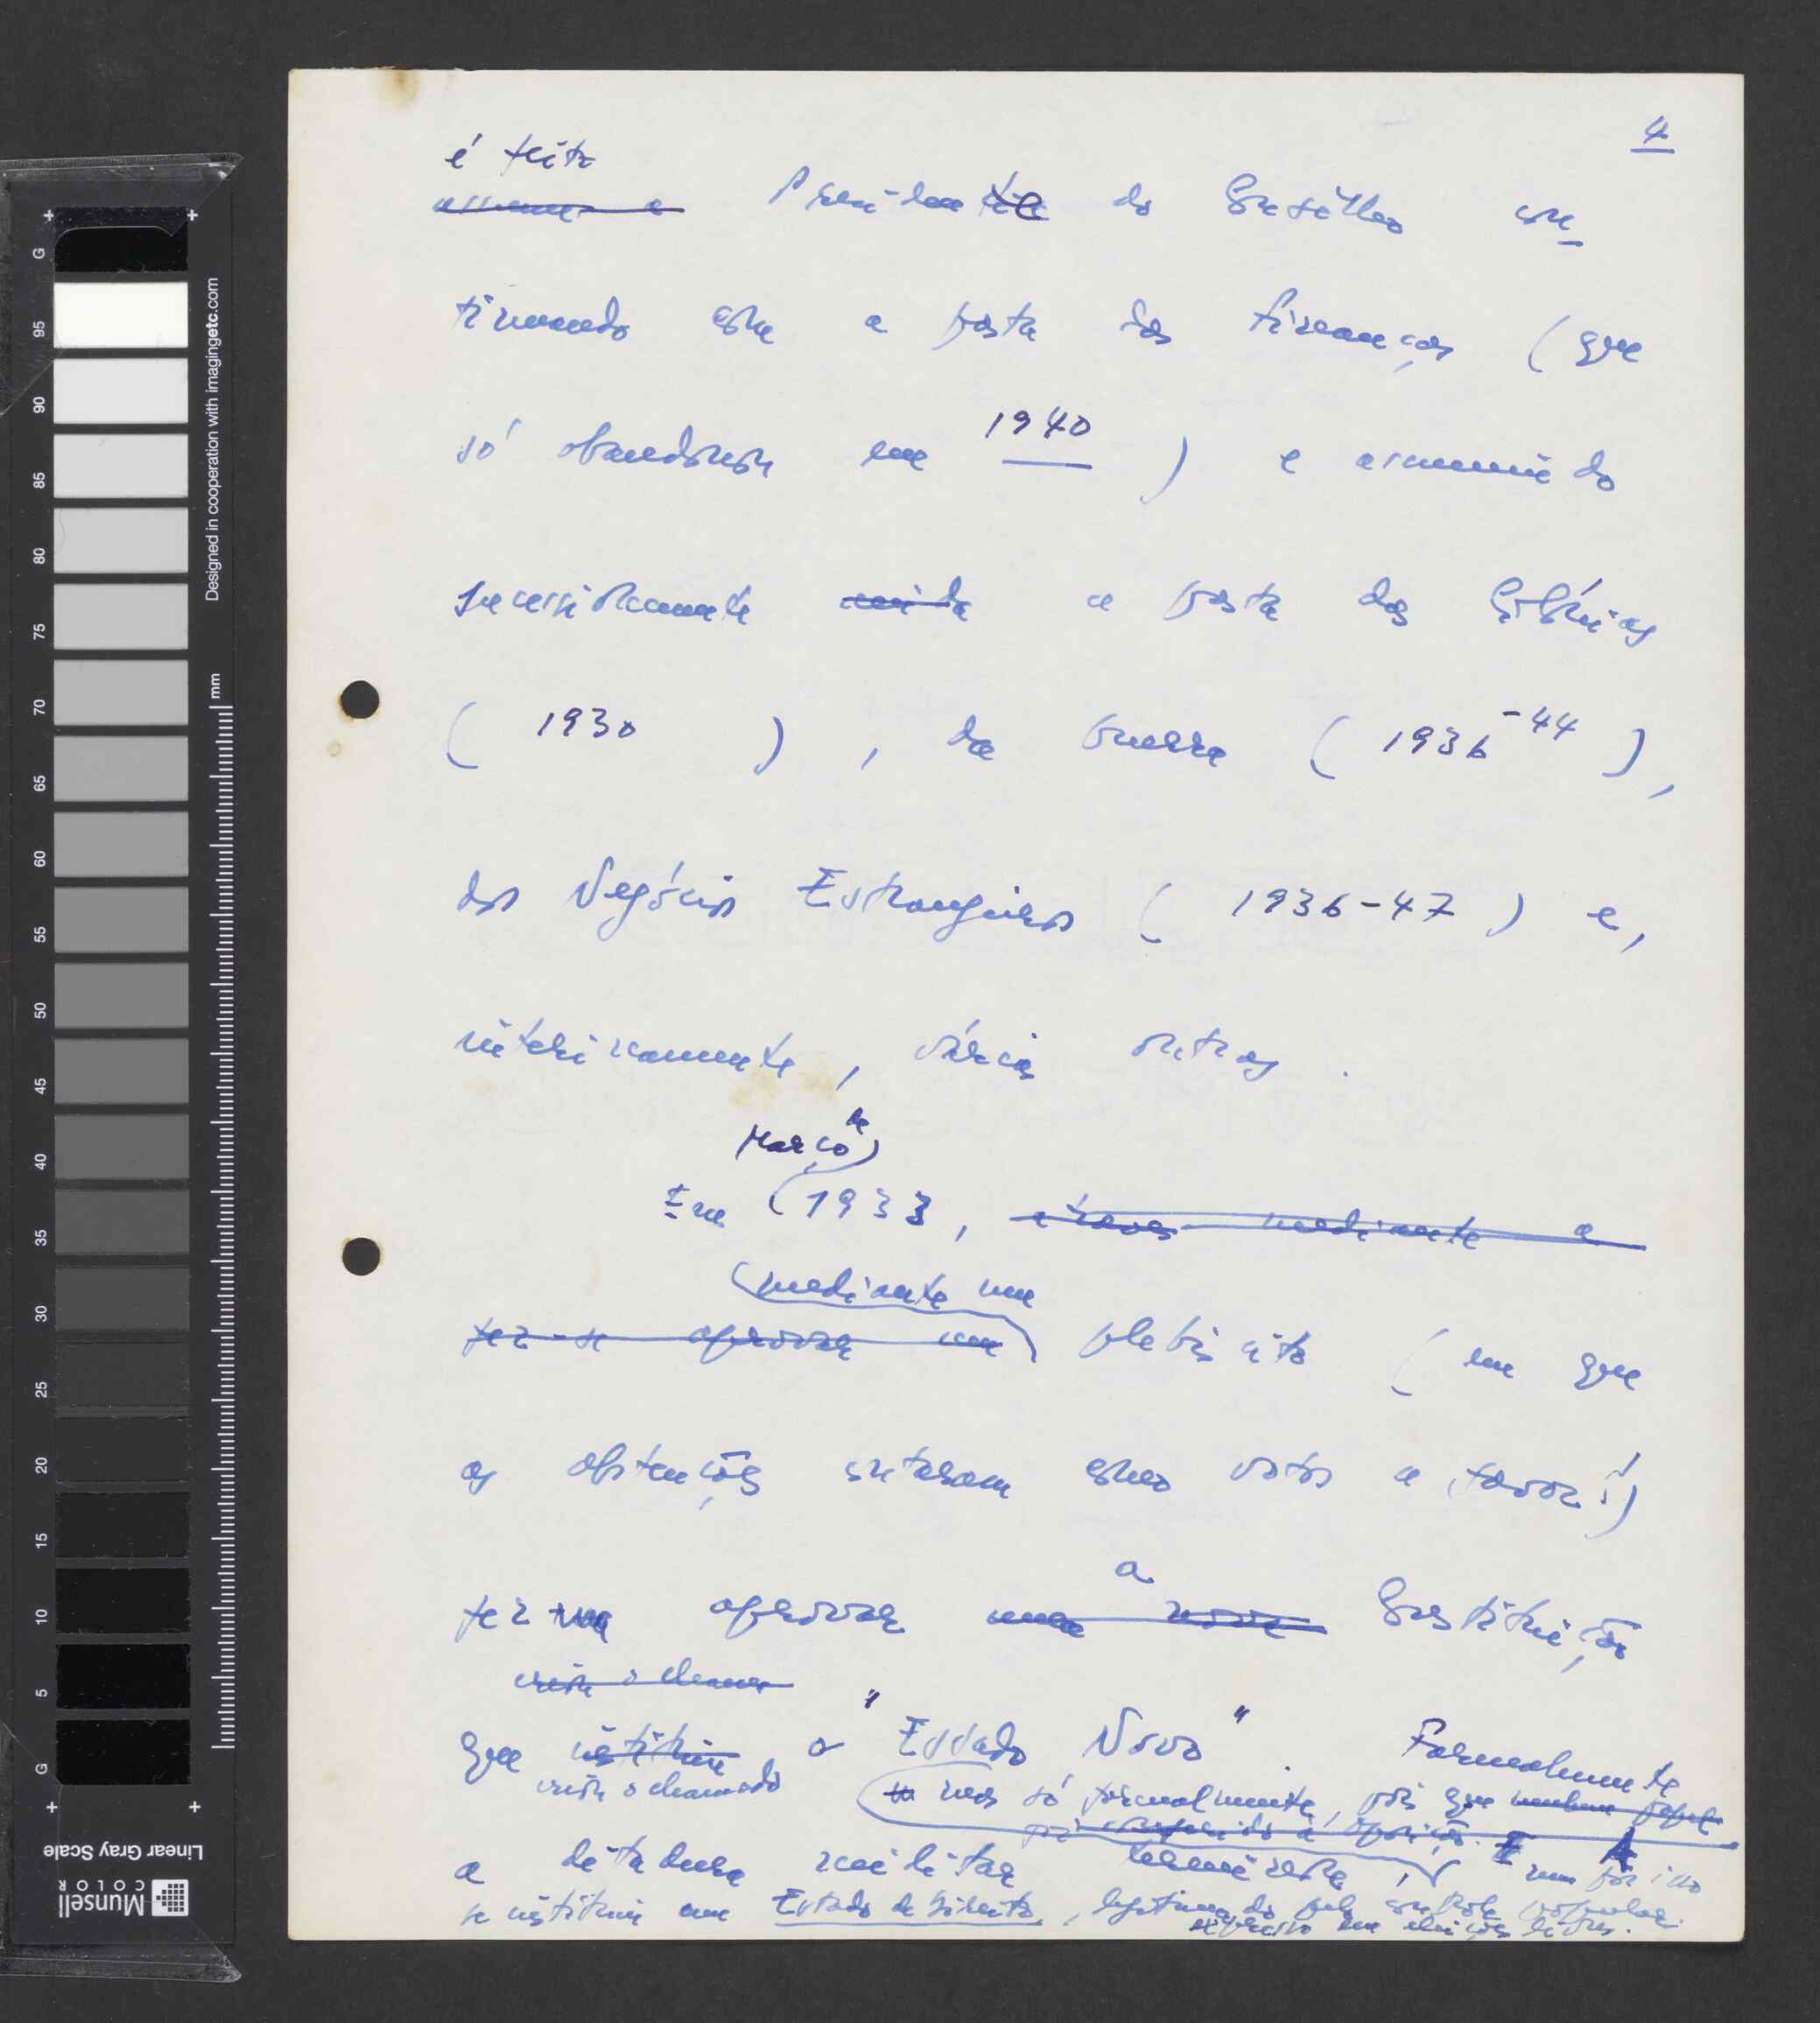 4
é feito
assume a Presidente do Conselho con-
tinuando com a pasta das Finanças (que
só abandonou em 1940) e assumindo
sucessivamente ainda a pasta das Colónias
(1930), da Guerra (1936-44),
dos Negócios Estrangeiros (1936-47) e,
interinamente, várias outras.
Março de
Em 1933, mediante a
mediante um
fez-se aprovar um plebiscito (em que
as abstenções contaram como votos a favor!)
a
fez aprovar uma nova Constituição
criou o chamado
que instituiu o "Estado Novo". Formalmente
criou o chamado mas só formalmente, pois que nenhum papel
a ditadura militar terminara, nem por isso
se instituiu um Estado de Direito, legitimado pelo controle popular
expresso em eleições livres.
G
95
90
85
80
75
70
65
60
55
50
45
40
35
30
25
20
15
10
5
G
mm
Designed in cooperation with imagingetc.com
Linear Gray Scale
Munsell
COLOR